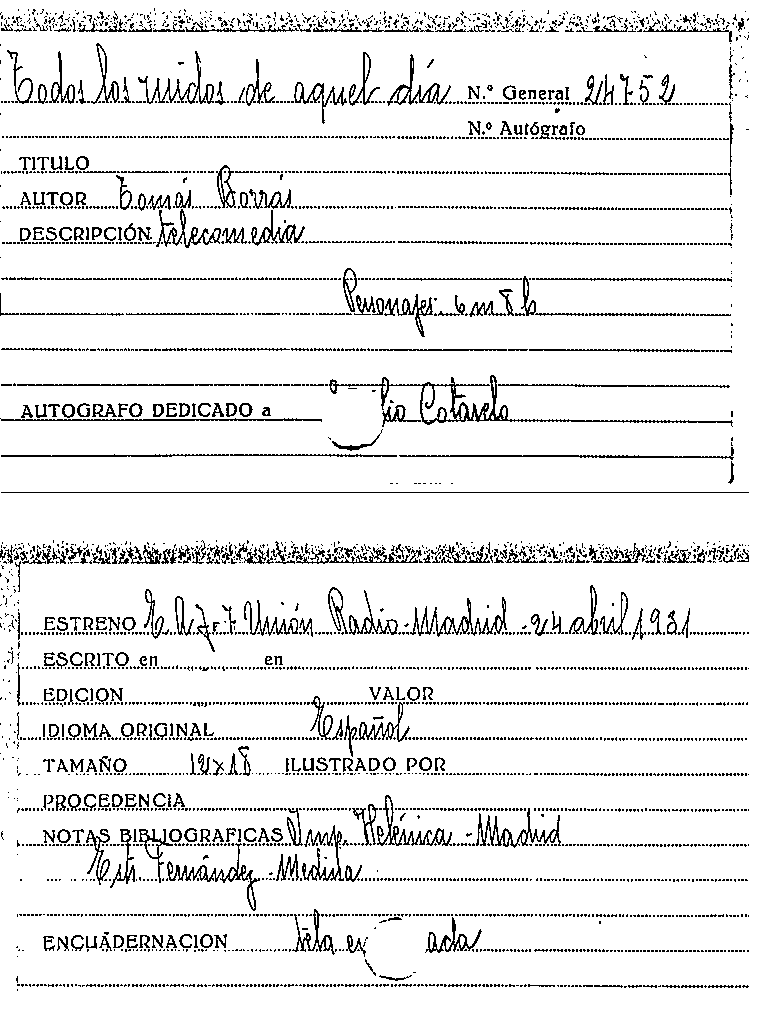 Todos los ruidos de aquel día N.º General 24752
N.º Autógrafo
TITULO
AUTOR Tomás Borrás
DESCRIPCIÓN telecomedia
Personajes. 6 m 8 h
AUTOGRAFO DEDICADO a lio Cotarelo
ESTRENO E. A. J.-7 Unión Radio-Madrid-24 abril 1931
ESCRITO en en
EDICION VALOR
IDIOMA ORIGINAL Español
TAMAÑO 12x18 ILUSTRADO POR
PROCEDENCIA
NOTAS BIBLIOGRAFICAS Imp. Helénica-Madrid
Fernández-Medina
ENCUADERNACION tela